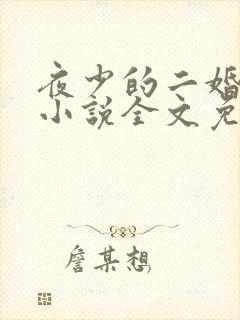 夜少的二婚
小説全文免
詹某想